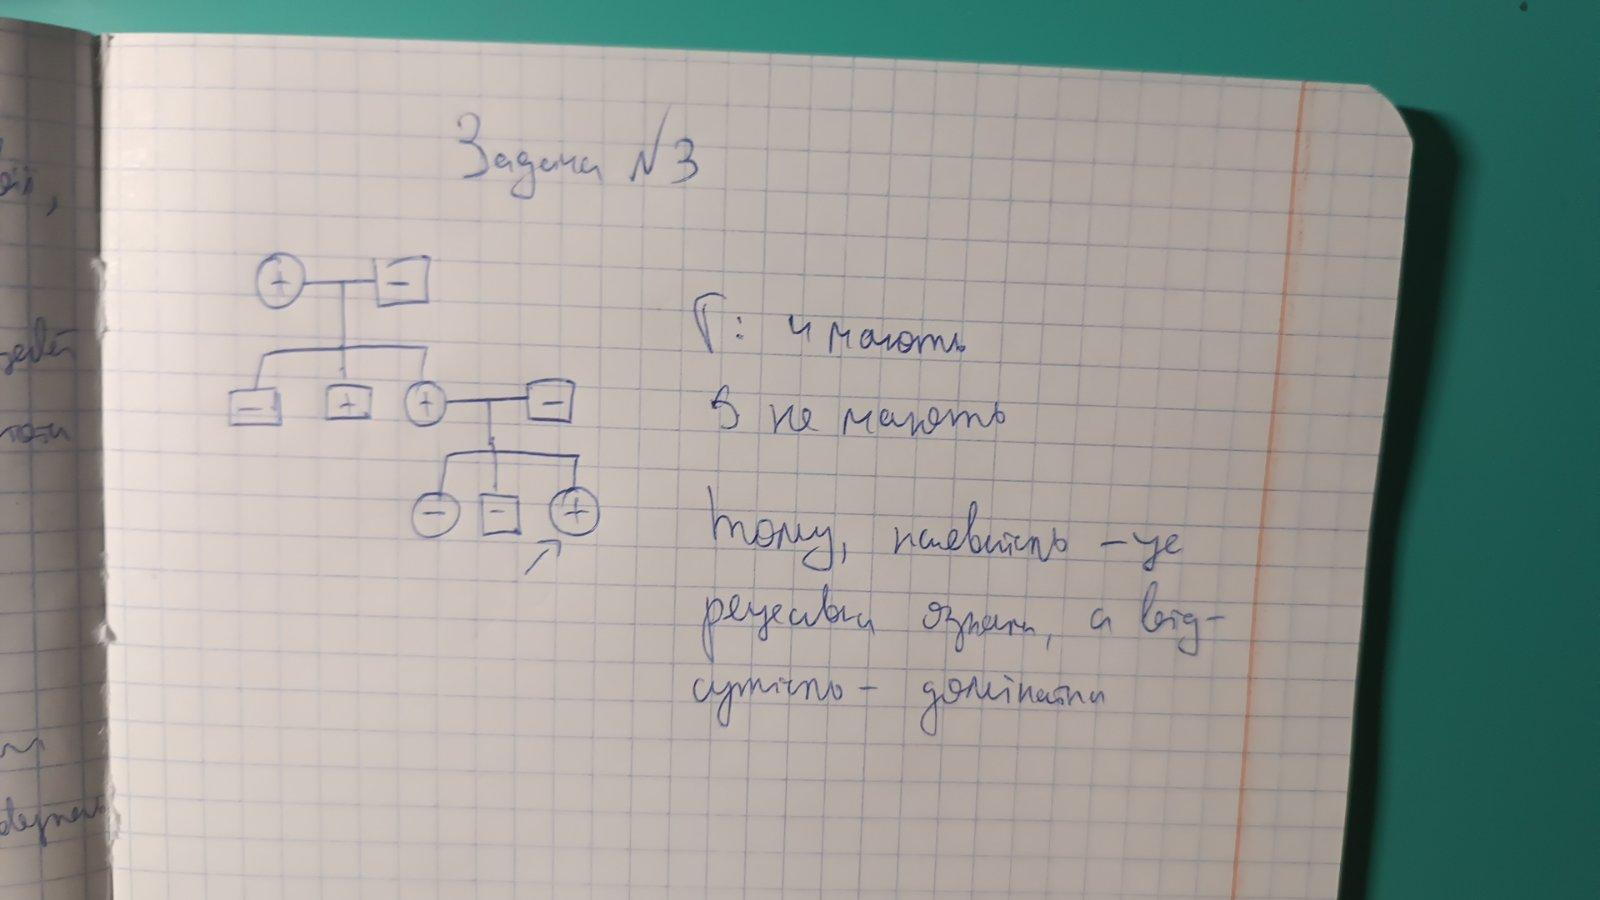 Задача №3
+ -
Г: 4 мають
- + + -
5 не мають
- - +
Тому, наявність - це
рецесивна ознака, а від-
сутність - домінантна